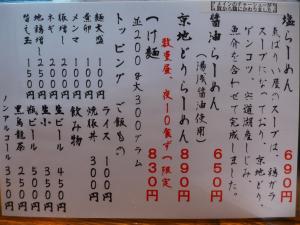 塩らーめん 690円
気ばりい屋のスープは、鶏ガラ
スープになっており、京地どり、
ゲンコツ、宍道湖産しじみ、
魚介を合わせて完成しました。
醤油らーめん 650円
(湯浅醤油使用)
京地どりらーめん 890円
数量昼、夜10食ずつ限定
つけ麺 830円
並200g大300グラム
トッピング
麺大盛 100円
煮卵 100円
メンマ 100円
豚増し 200円
ネギ 100円
地鶏増し 250円
替え玉 150円
ご飯もの
ライス 100円
焼豚丼 300円
飲み物
生ビール 450円
生小 250円
瓶ビール 500円
黒烏龍茶 250円
ノンアルコール 350円